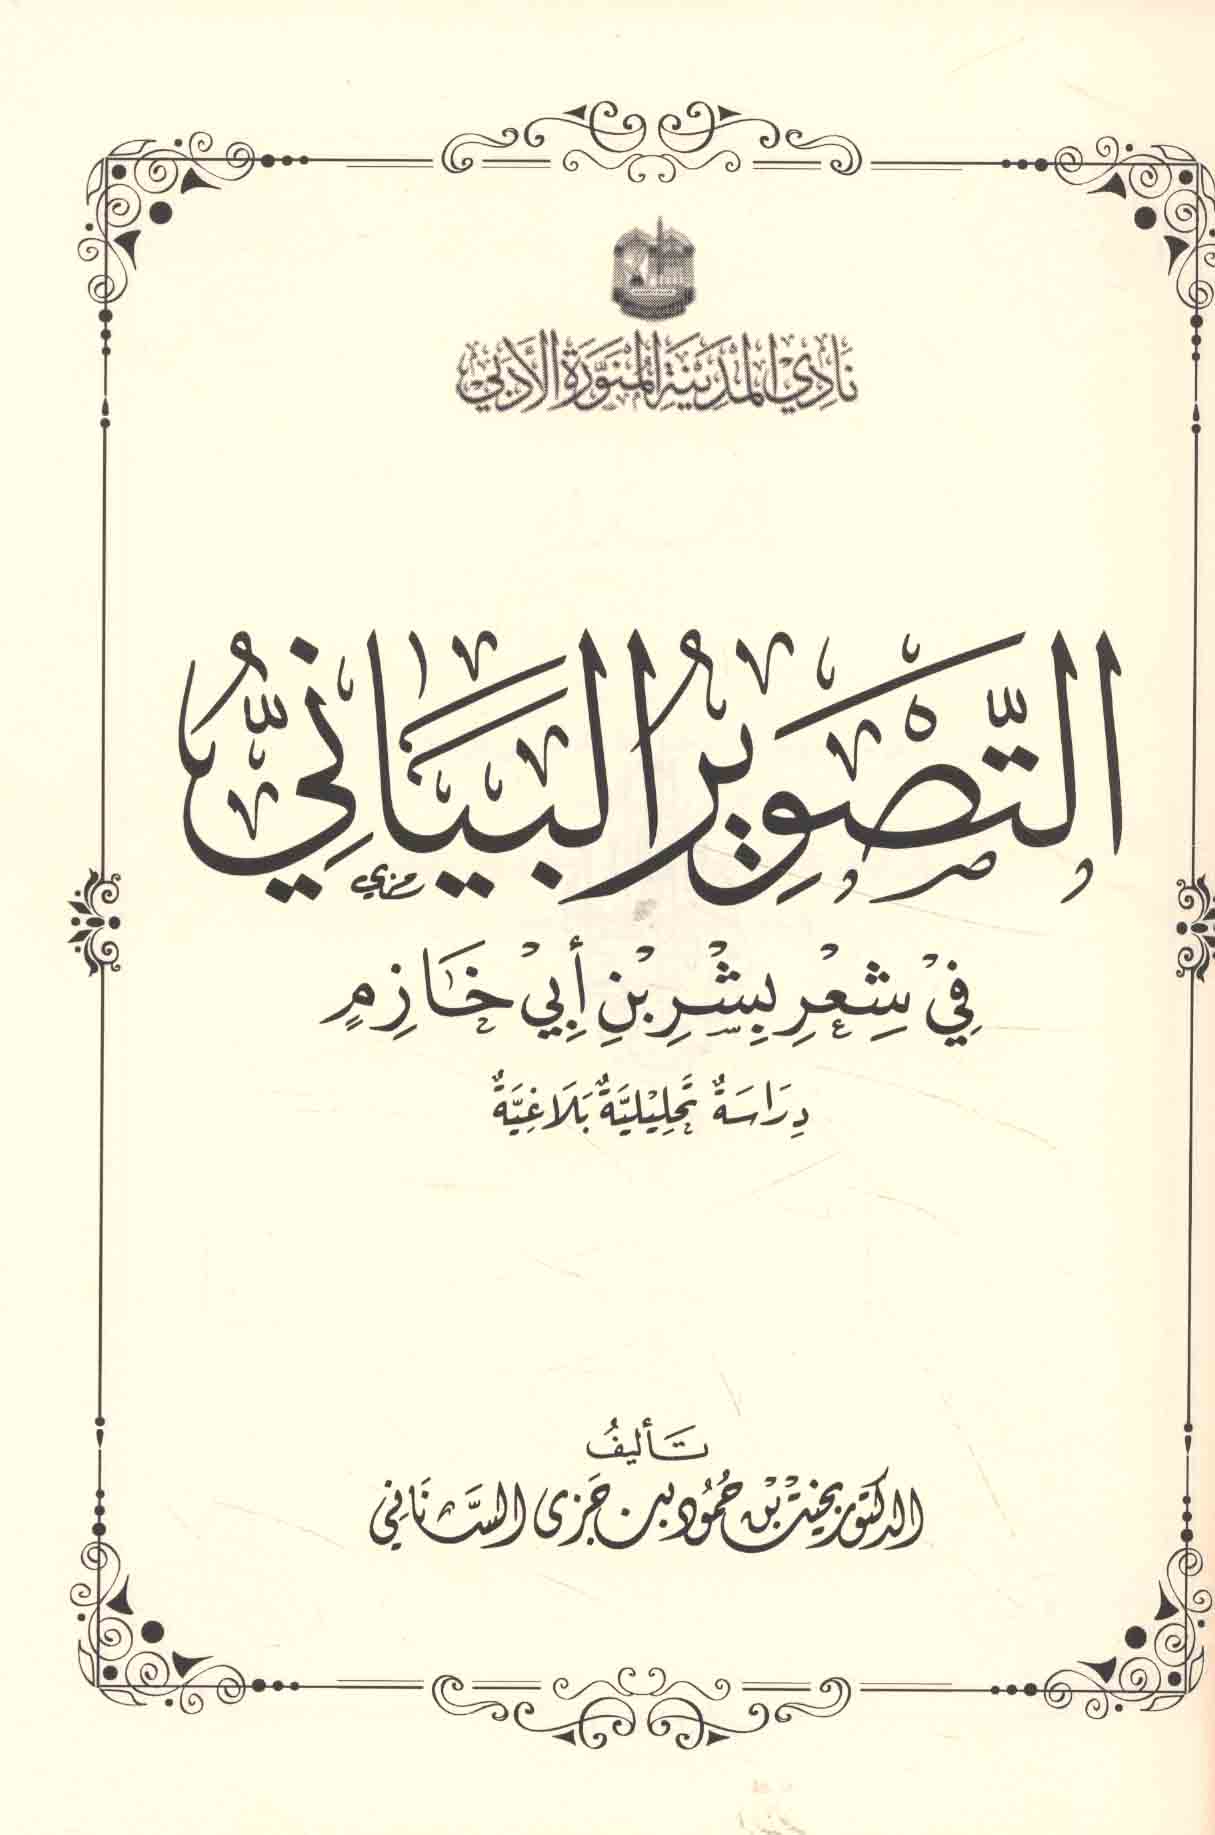 نَادِي المَدِينَةِ المُنَوَّرَةِ الأَدَبِيّ
التَّصْوِيرُ البَيَانِيُّ
فِيْ شِعْرِ بِشْرِ بْنِ أَبِيْ خَازِمٍ
دِرَاسَةٌ تَحْلِيْلِيَّةٌ بَلَاغِيَّةٌ
تَأليفُ
الدكتور بخيت بْن حُمُود بن جَزى السَّنَانِي